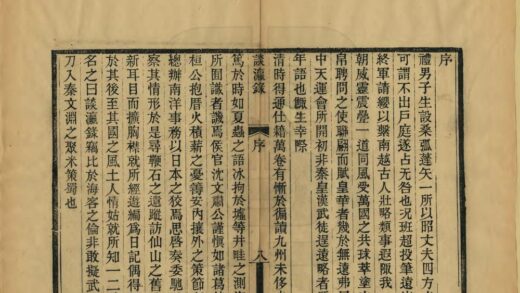 序
禮男子生設桑弧蓬矢一所以昭丈夫四方
可謂不出戶庭遂占无咎也況班超投筆遠
終軍請纓以繫南越古人壯略類事遐陬我
朝威靈震疊一道同風受萬國之共球萃塗
帛聘問之使聯翩而賦皇華者幾於無遠弗
中天運會所開初非秦皇漢武徒逞遠略者
年語也鄙生幸際
清時得通仕籍萬卷有慚於徧讀九州未侈
談瀛錄 序 八
篤於時如夏蟲之語冰拘於墟等井蛙之測
所囿識者譏焉侯官沈文肅公謹愼如諸葛
桓公抱厝火積薪之憂善安內攘外之策節
總辦南洋事務以日本之狡焉思啓奏委馳
察其情形於是尋鞭石之遺蹤訪仙山之舊
新耳目而擴胸襟就所經遊編爲日記偶得
於其後至其國之風土人情姑就所知一二
名之曰談瀛錄竊比於海客之倫非敢擬武
刀入秦文淵之聚米策蜀也